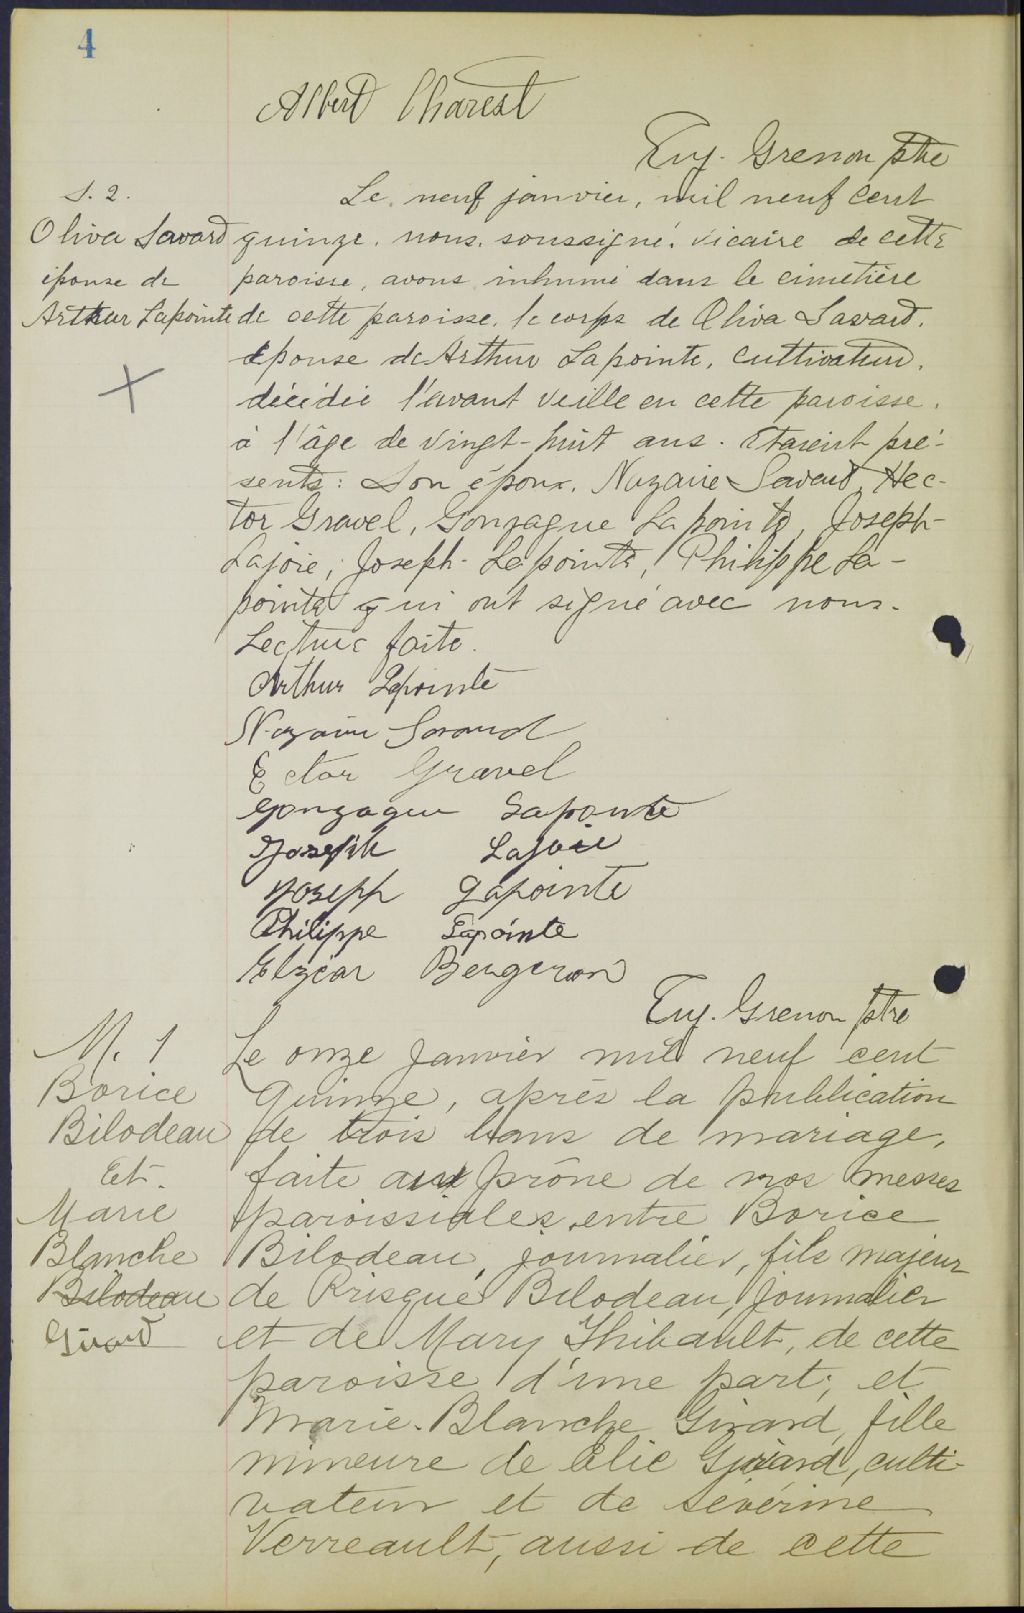 4
Albert Charest
Eug. Grenon ptre
S. 2.
Oliva Savard
épouse de
Arthur Lapointe
Le neuf janvier, mil neuf cent
quinze, nous, soussigné, vicaire de cette
paroisse, avons inhumé dans le cimetière
de cette paroisse, le corps de Oliva Savard,
épouse de Arthur Lapointe, cultivateur,
décédée l'avant veille en cette paroisse,
à l'âge de vingt-huit ans. Étaient pré-
sents: Son époux, Nazaire Savard, Hec-
tor Gravel, Gonzague Lapointe, Joseph-
Lajoie, Joseph-Lapointe, Philippe La-
pointe qui ont signé avec nous.
Lecture faite.
Arthur Lapointe
Nazaire Savard
Ector Gravel
Gonzague Lapointe
Joseph Lajoie
Joseph Lapointe
Philippe Lapointe
Elzéar Bergeron
Eug. Grenon ptre
M. 1
Borice
Bilodeau
Et.
Marie
Blanche
Bilodeau
Girard
Le onze Janvier mil neuf cent
quinze, après la publication
de trois bans de mariage,
faite au prône de nos messes
paroissiales entre Borice
Bilodeau, journalier, fils majeur
de Prisque Bilodeau, journalier
et de Mary Thibault, de cette
paroisse d'une part; et
Marie-Blanche Girard, fille
mineure de Elie Girard, culti-
vateur et de Sévérine
Verreault, aussi de cette